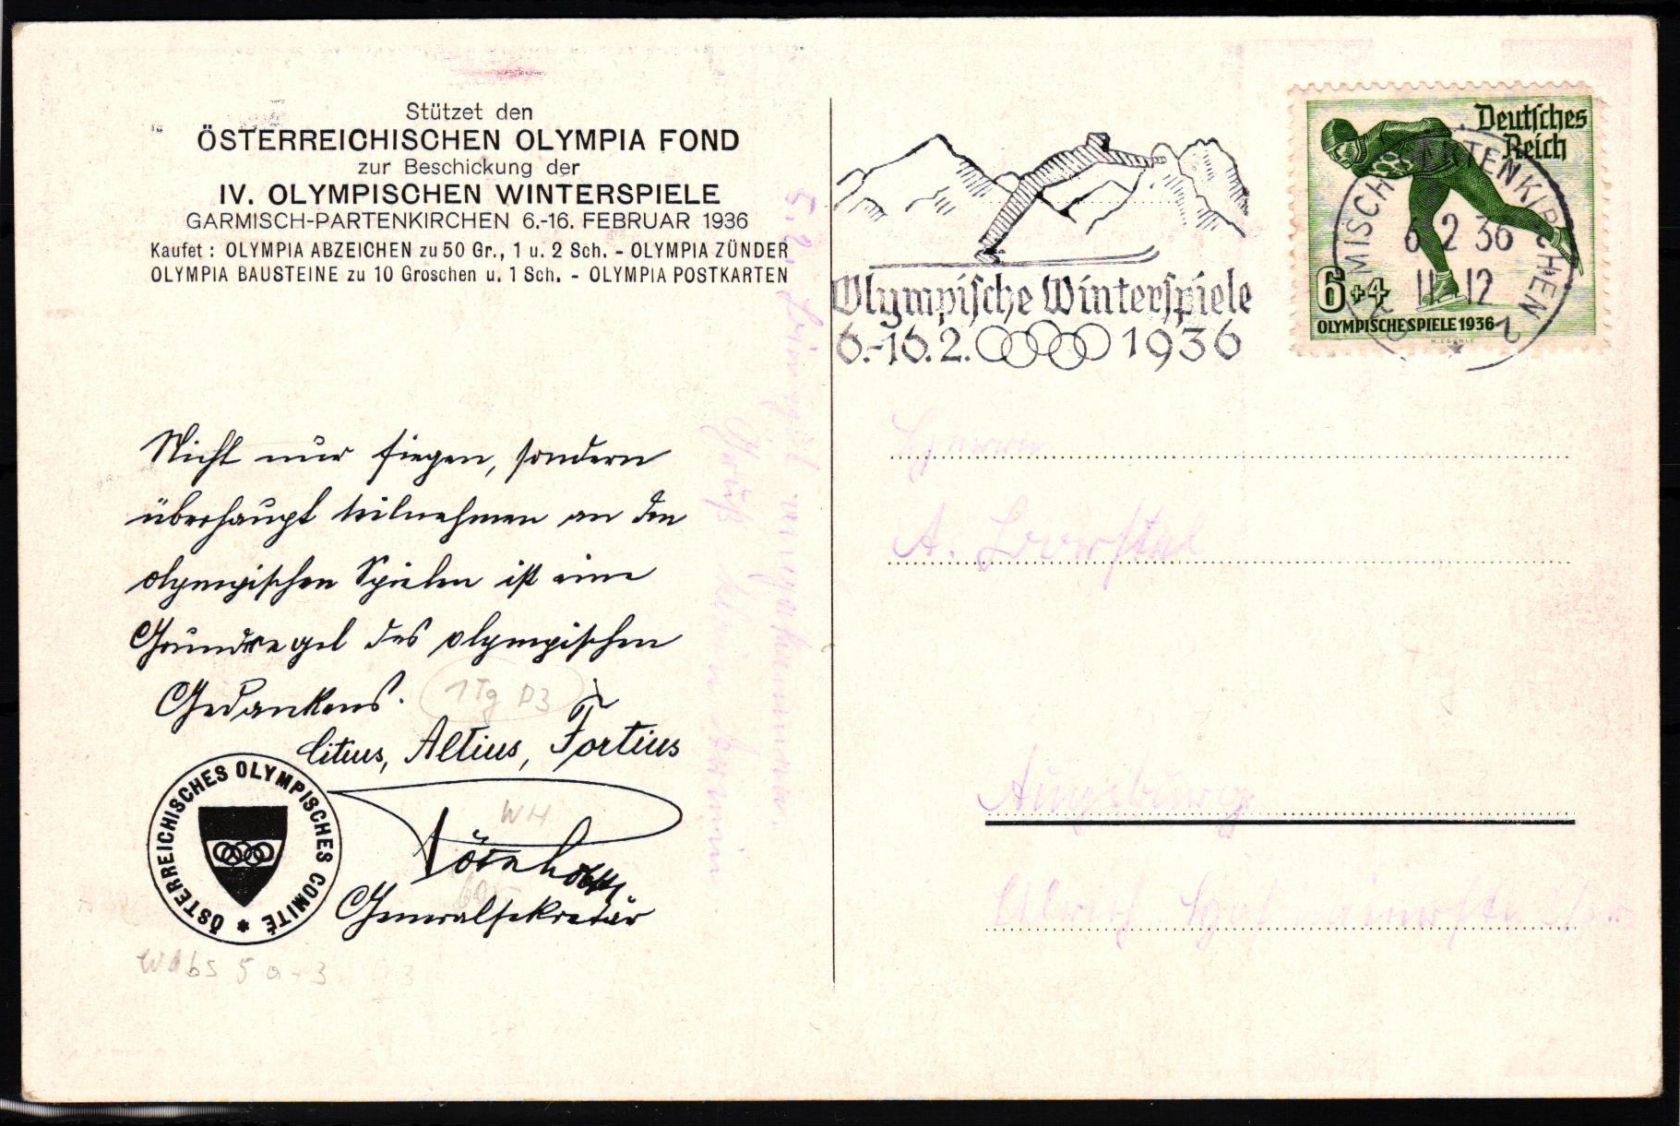 Stützet den
ÖSTERREICHISCHEN OLYMPIA FOND
zur Beschickung der
IV. OLYMPISCHEN WINTERSPIELE
GARMISCH-PARTENKIRCHEN 6.-16. FEBRUAR 1936
Kaufet: OLYMPIA ABZEICHEN zu 50 Gr., 1 u. 2 Sch. - OLYMPIA ZÜNDER
OLYMPIA BAUSTEINE zu 10 Groschen u. 1 Sch. - OLYMPIA POSTKARTEN
Nicht nur siegen, sondern
überhaupt teilnehmen an den
olympischen Spielen ist eine
Grundregel des olympischen
Gedankens.
1Tg P3
Citius, Altius, Fortius
WH
Generalsekretär
ÖSTERREICHISCHES OLYMPISCHES COMITÉ *
5.2.
Gruß
Olympische Winterspiele
6.-16.2. 1936
Deutsches
Reich
6+4
OLYMPISCHE SPIELE 1936
GARMISCH-PARTENKIRCHEN 2
6 2 36
11-12
*
Herrn
A.
Augsburg